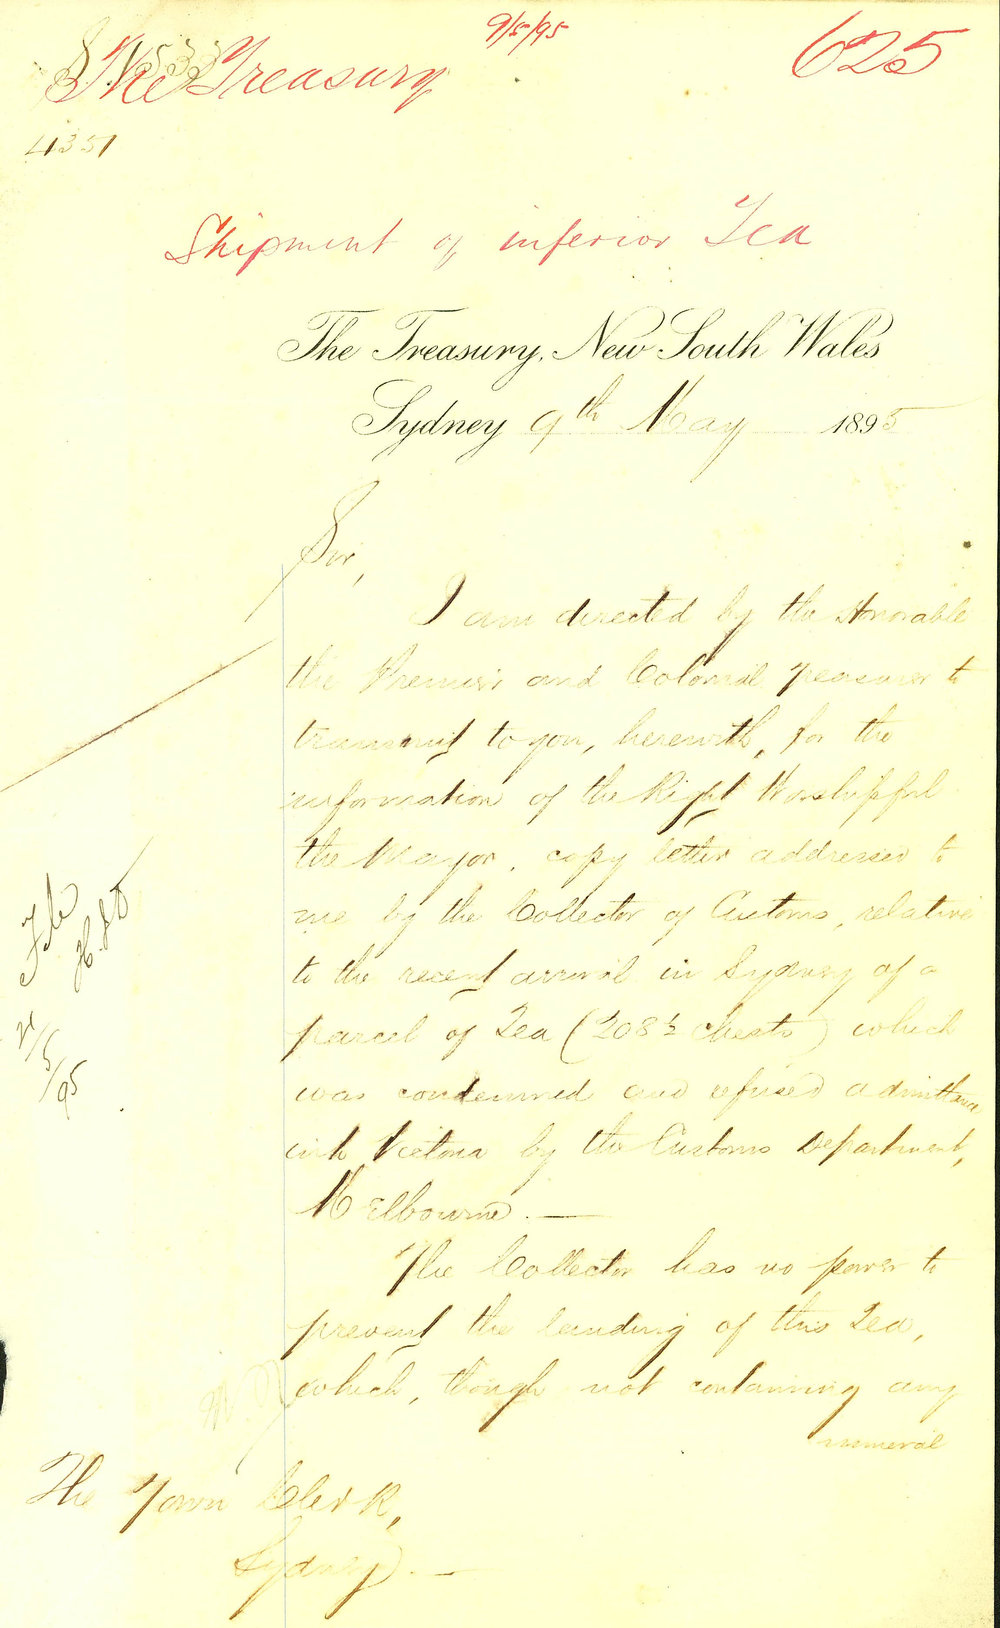 9/5/95
625
The Treasury
4351
Shipment of inferior Tea
The Treasury, New South Wales
Sydney 9th May 1895
Sir,
I am directed by the Honorable
the Premier and Colonial Treasurer to
transmit to you, herewith, for the
information of the Right Worshipful
the Mayor, copy letter addressed to
me by the Collector of Customs, relative
to the recent arrival in Sydney of a
parcel of Tea (208 ½ chests) which
was condemned and refused admittance
into Victoria by the Customs Department,
Melbourne. —
The Collector has no power to
prevent the landing of this Tea,
which, though not containing any
mineral
The Town Clerk,
Sydney. —
File
21/5/95